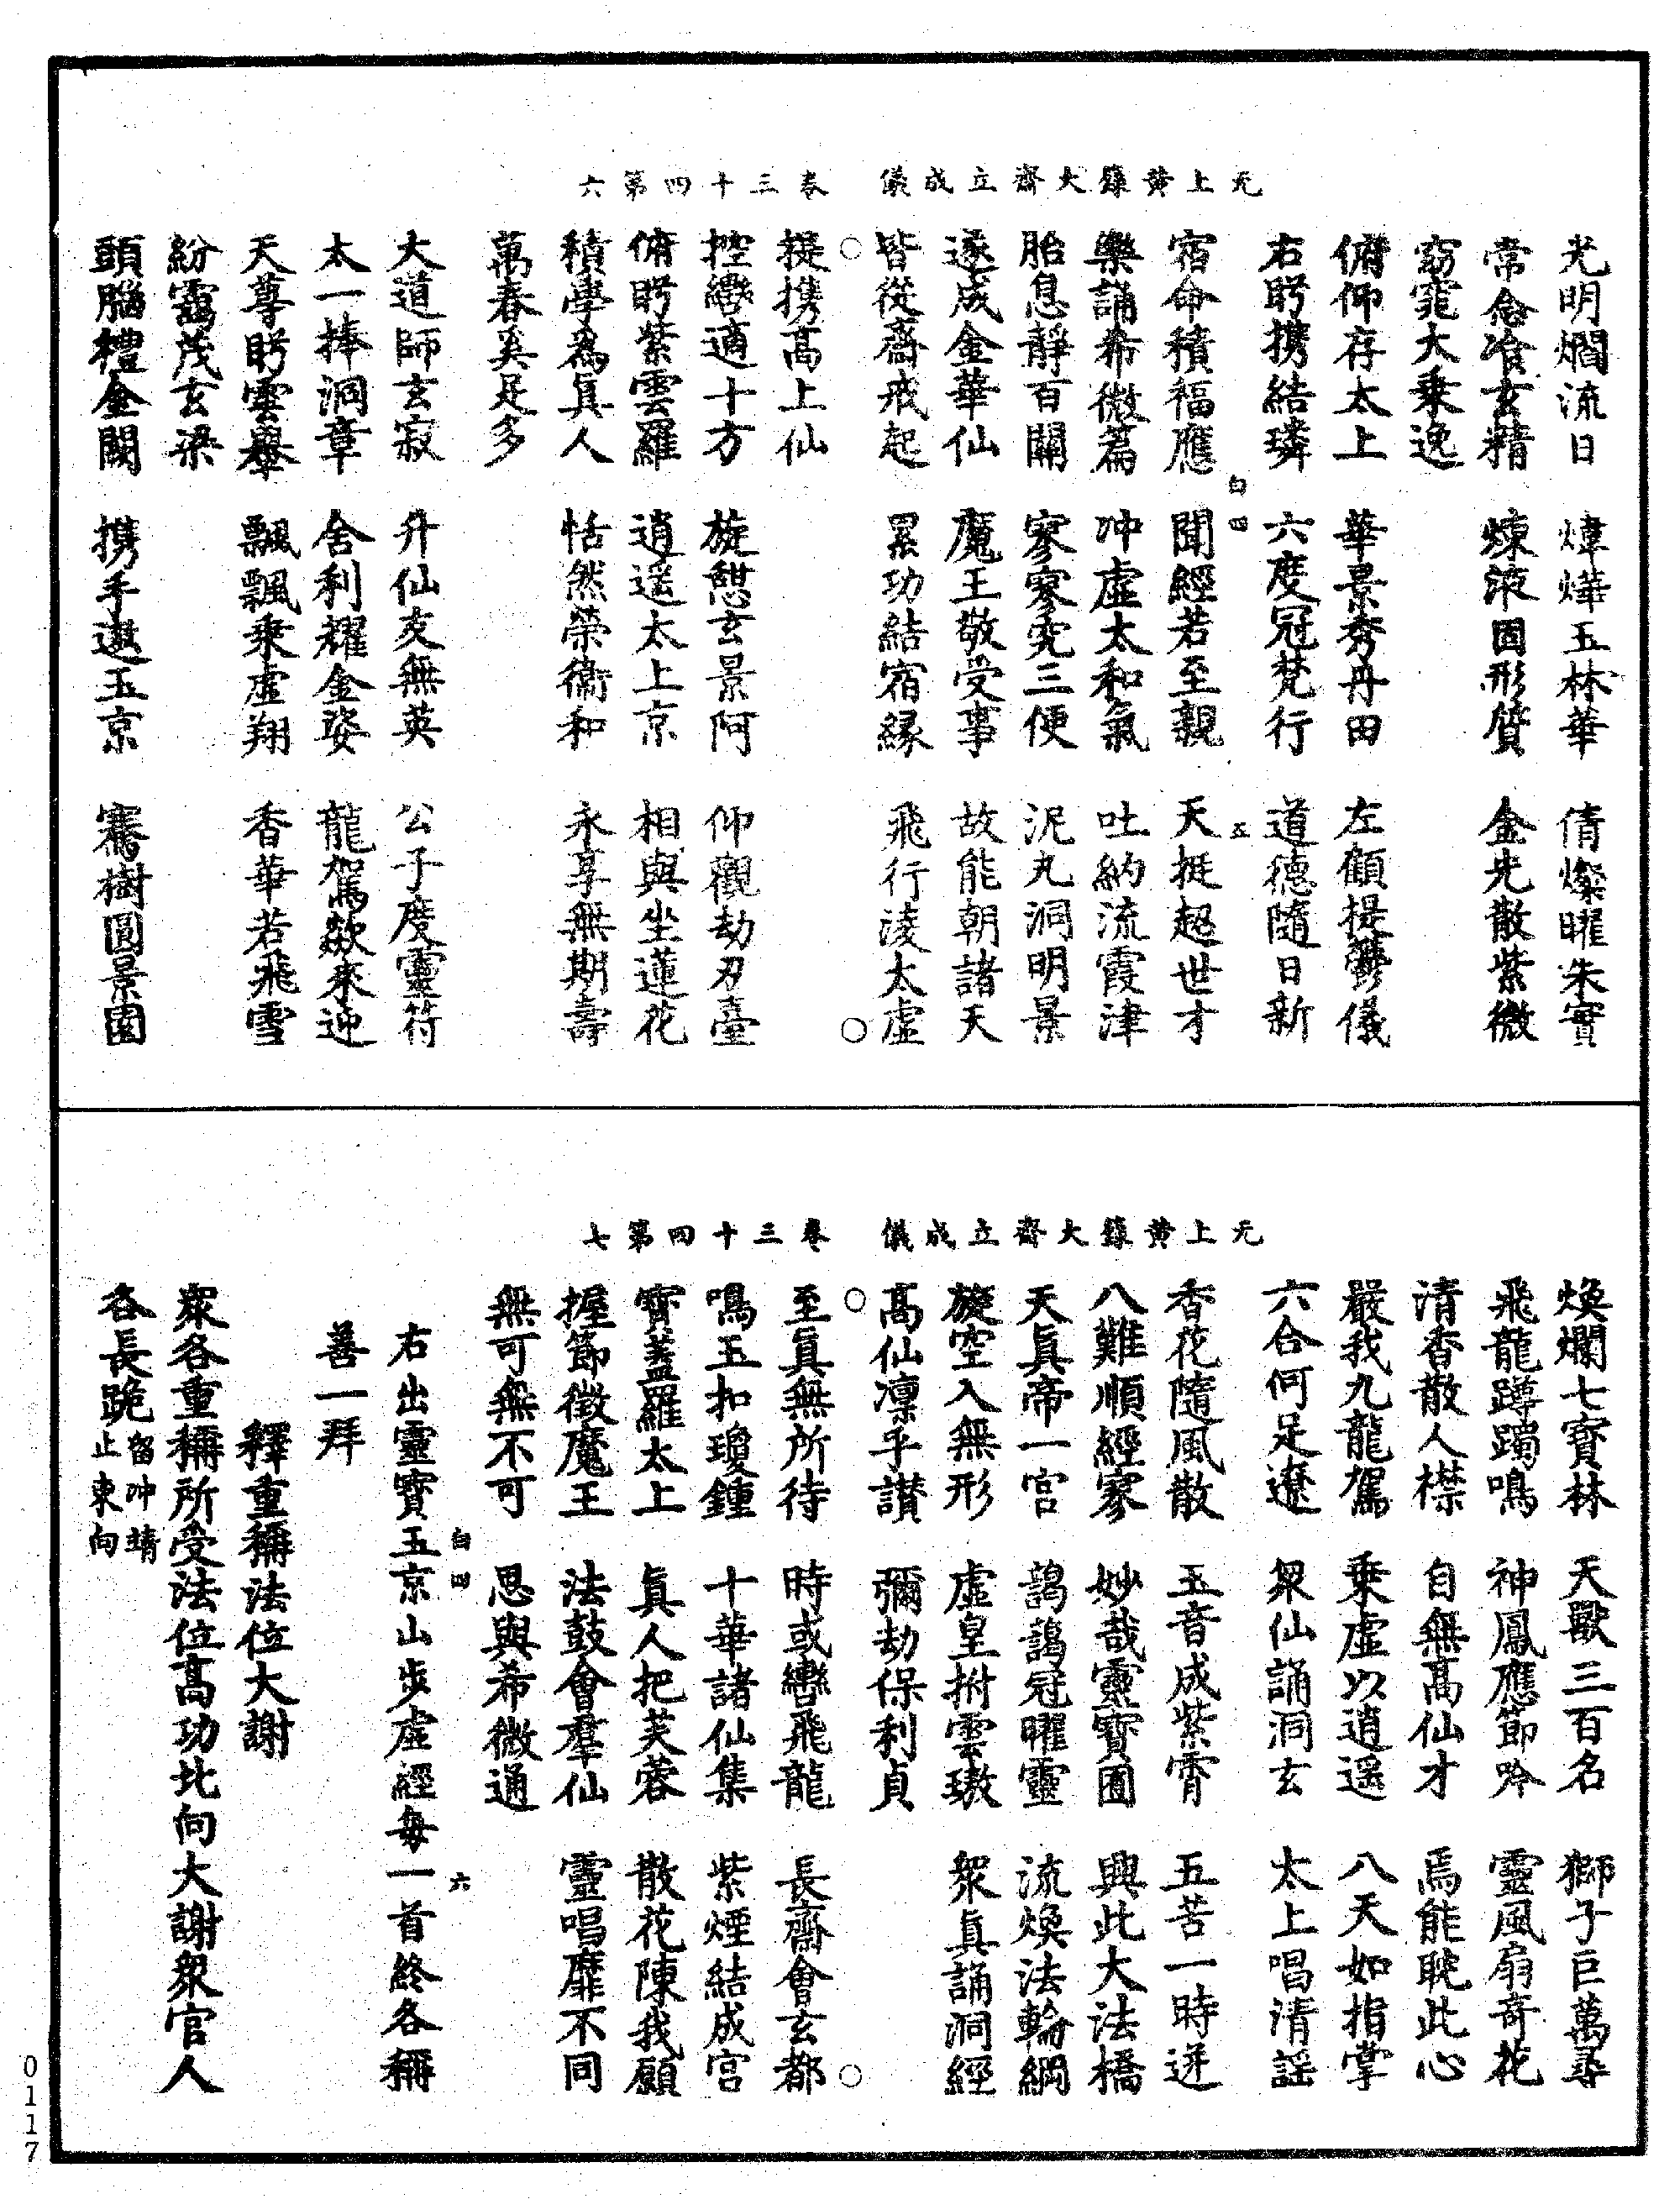 无上黄籙大齋立成儀　卷三十四第六
光明爓流日　煒燁玉林華　倩燦曜朱實
常念飡玄精　煉液固形質　金光散紫微
窈窕大乗逸
俯仰存太上　華景秀丹田　左顧提鬱儀
右眄携結璘　六度冠梵行　道德隨日新
白四　五
宿命積福應　聞經若至親　天挺超世才
樂誦希微篇　冲虚太和氣　吐納流霞津
胎息静百關　寥寥究三便　泥丸洞明景
遂成金華仙　魔王敬受事　故能朝諸天
皆從齋戒起　累功結宿緣　飛行凌太虚
提携高上仙
控轡適十方　旋憇玄景阿　仰觀劫刃臺
俯眄紫雲羅　逍遥太上京　相與坐蓮花
積學為真人　恬然榮衞和　永享無期壽
萬春奚足多
大道師玄寂　升仙友無英　公子度靈符
太一捧洞章　舍利耀金姿　龍駕欻來迎
天尊眄雲轝　飄飄乗虚翔　香華若飛雪
紛靄茂玄梁
頭腦禮金闕　携手遨玉京　騫樹圓景園
无上黄籙大齋立成儀　卷三十四第七
煥爛七寳林　天獸三百名　獅子巨萬尋
飛龍躑躅鳴　神鳳應節吟　靈風扇奇花
清香散人襟　自無高仙才　焉能眈此心
嚴我九龍駕　乗虚以逍遥　八天如指掌
六合何足遼　衆仙誦洞玄　太上唱清謡
香花隨風散　玉音成紫霄　五苦一時迸
八難順經寥　妙哉靈寳囿　興此大法橋
天真帝一宫　藹藹冠曜靈　流煥法輪綱
旋空入無形　虚皇拊雲璈　衆真誦洞經
高仙凛乎讃　彌劫保利貞
至真無所待　時或轡飛龍　長齋會玄都
鳴玉扣瓊鍾　十華諸仙集　紫煙結成宫
寳蓋羅太上　真人把芙蓉　散花陳我願
握節徵魔王　法鼓會羣仙　靈唱靡不同
無可無不可　思與希微通
白四　六
右出靈寳玉京山步虚經每一首終各稱
善一拜
釋重稱法位大謝
衆各重稱所受法位高功北向大謝衆官人
各長跪留冲靖止東向
0117